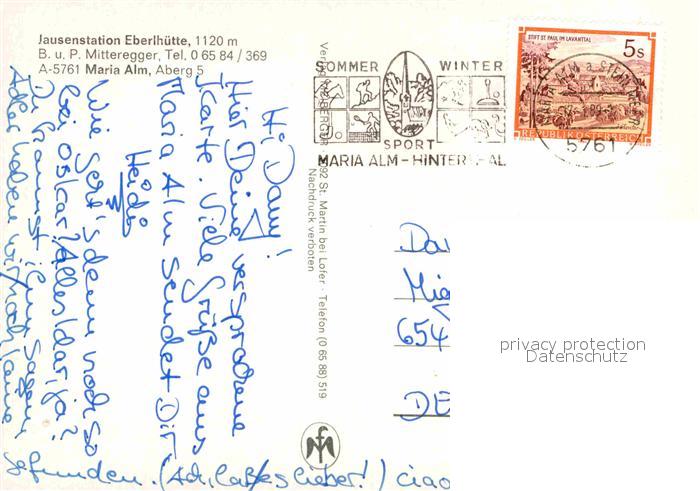 Jausenstation Eberlhütte, 1120 m
B. u. P. Mitteregger, Tel. 0 65 84 / 369
A-5761 Maria Alm, Aberg 5
SOMMER WINTER
SPORT
MARIA ALM - HINTER
STIFT ST. PAUL IM LAVANTTAL
5s
REPUBLIK ÖSTERREICH
5761
Hi Dany!
Hier Deine versprochene
Karte. Viele Grüße aus
Maria Alm sendet Dir
Heidi
Wie geht's denn noch so
bei Oskar? Alles klar, ja?
Du kannst ihm sagen,
haben wir noch
gefunden. (Ach, laß es lieber!) ciao
92 St. Martin bei Lofer · Telefon (0 65 88) 519
Nachdruck verboten
654
DE
privacy protection
Datenschutz